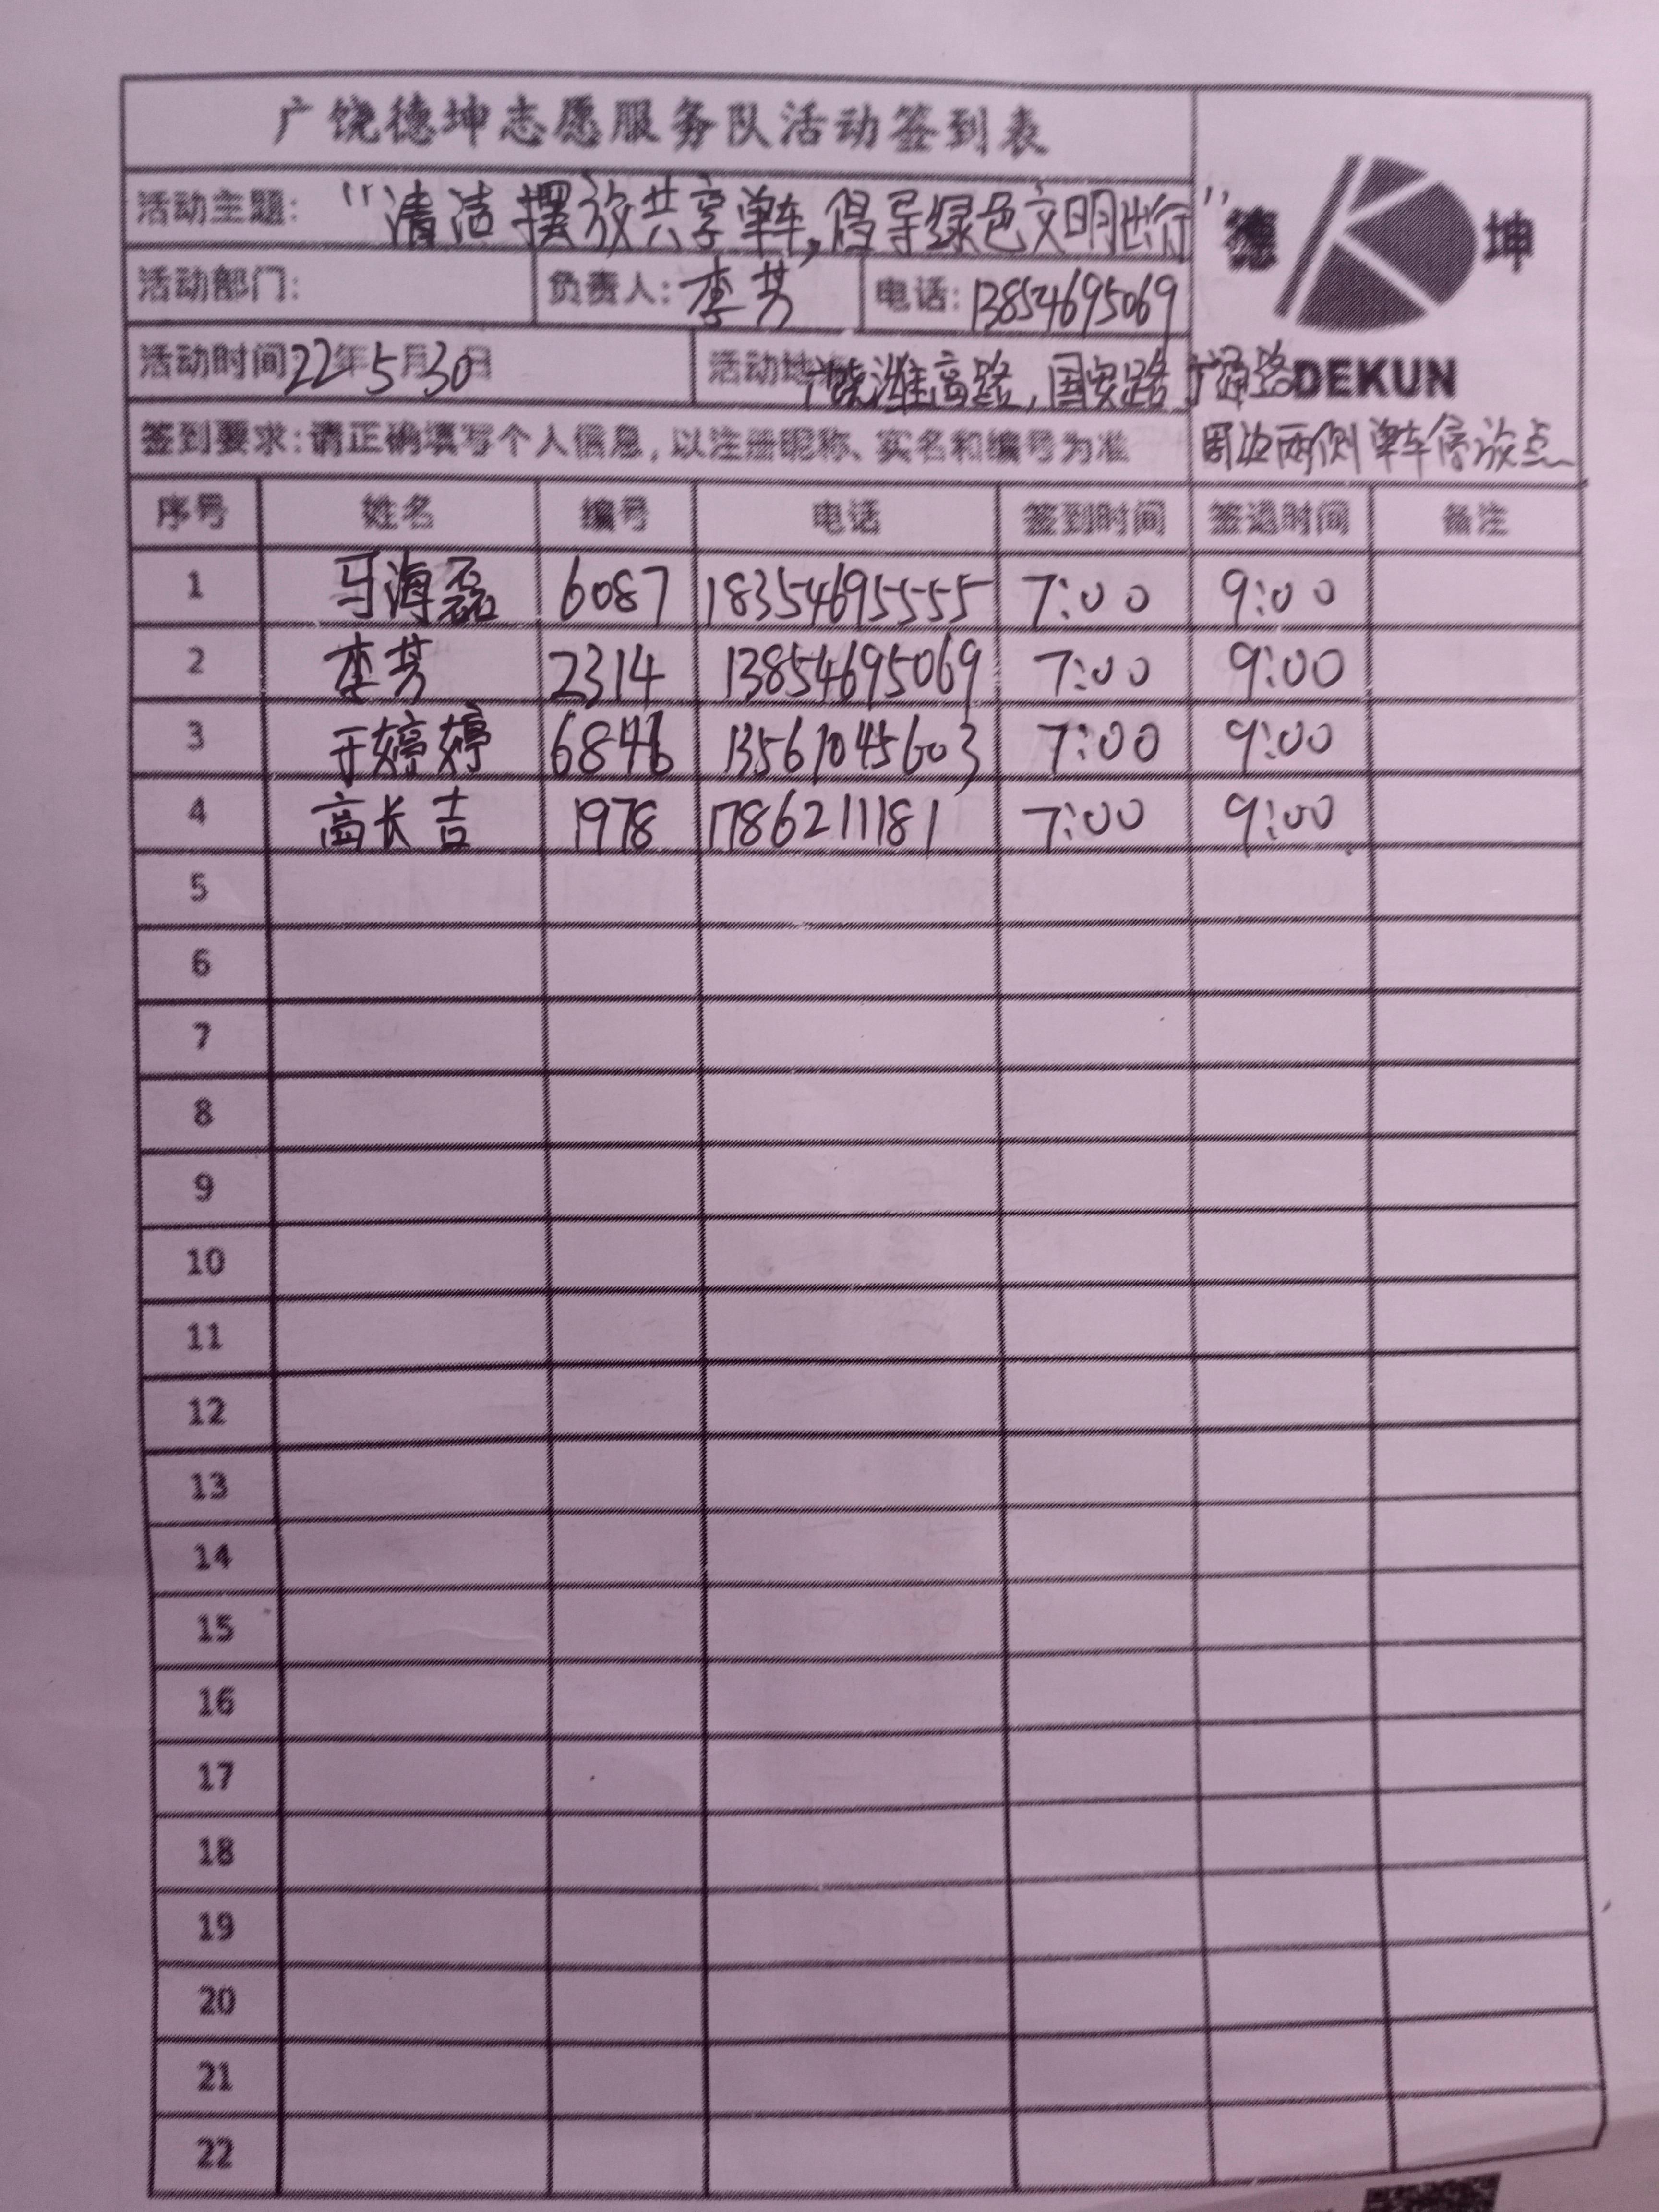 广饶德坤志愿服务队活动签到表
活动主题: "清洁摆放共享单车,倡导绿色文明出行"
德 坤
活动部门: 负责人: 李芳 电话: 13854695069
活动时间 22年5月30日 活动地 广饶潍高路,国安路 广通路
DEKUN
签到要求:请正确填写个人信息,以注册昵称、实名和编号为准 周边两侧单车停放点
序号 姓名 编号 电话 签到时间 签退时间 备注
1 马海磊 6087 18354695555 7:00 9:00
2 李芳 2314 13854695069 7:00 9:00
3 于婷婷 6846 13561045603 7:00 9:00
4 高长吉 1978 1786211181 7:00 9:00
5
6
7
8
9
10
11
12
13
14
15
16
17
18
19
20
21
22